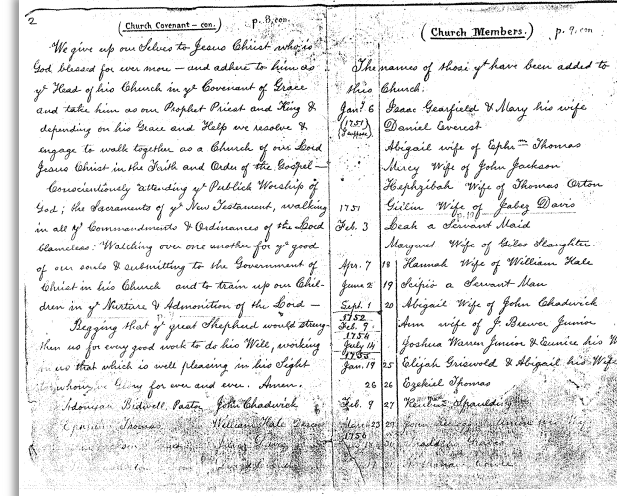 2
(Church Covenant – con.) p. 8, con.
We give up our Selves to Jesus Christ who is
God blessed for ever more – and adhere to him as
yᵉ Head of his Church in yᵉ Covenant of Grace
and take him as our Prophet Priest and King &
depending on his Grace and Help we resolve &
engage to walk together as a Church of our Lord
Jesus Christ in the Faith and Order of the Gospel –
Conscientiously attending yᵉ Publick Worship of
God; the Sacraments of yᵉ New Testament, walking
in all yᵉ Commandments & Ordinances of the Lord
blameless: Watching over one another for yᵉ good
of our souls & submitting to the Government of
Christ in his Church and to train up our Chil-
dren in yᵉ Nurture & Admonition of the Lord –
Begging that yᵉ great Shepherd would streng-
then us for every good work to do his Will, working
in us that which is well pleasing in his Sight
Glory for ever and ever. Amen.
Adonijah Bidwell, Pastor John Chadwick
Thomas William Hale
(Church Members.) p. 9, con
The names of those yᵗ have been added to
this Church.
Jan? 6 Isaac Gearfield & Mary his wife
(1751) Daniel Everest
Abigail wife of Ephrᵐ Thomas
Mercy Wife of John Jackson
Hephzibah Wife of Thomas Orton
1751 Wife of Jabez Davis
Feb. 3 Leah a Servant Maid
Wife of Giles Slaughter
Apr. 7 18 Hannah Wife of William Hale
June 2 19 Scipio a Servant Man
Sept. 1 20 Abigail Wife of John Chadwick
1752
Feb. 9 Ann wife of J. Brewer Junior
1754
July 14 Joshua Warren Junior & Eunice his W
1755
Jan. 19 25 Elijah Griswold & Abigail his Wife
26 26 Ezekiel Thomas
Feb. 9 27 Reuben Spaulding
23 John
1756